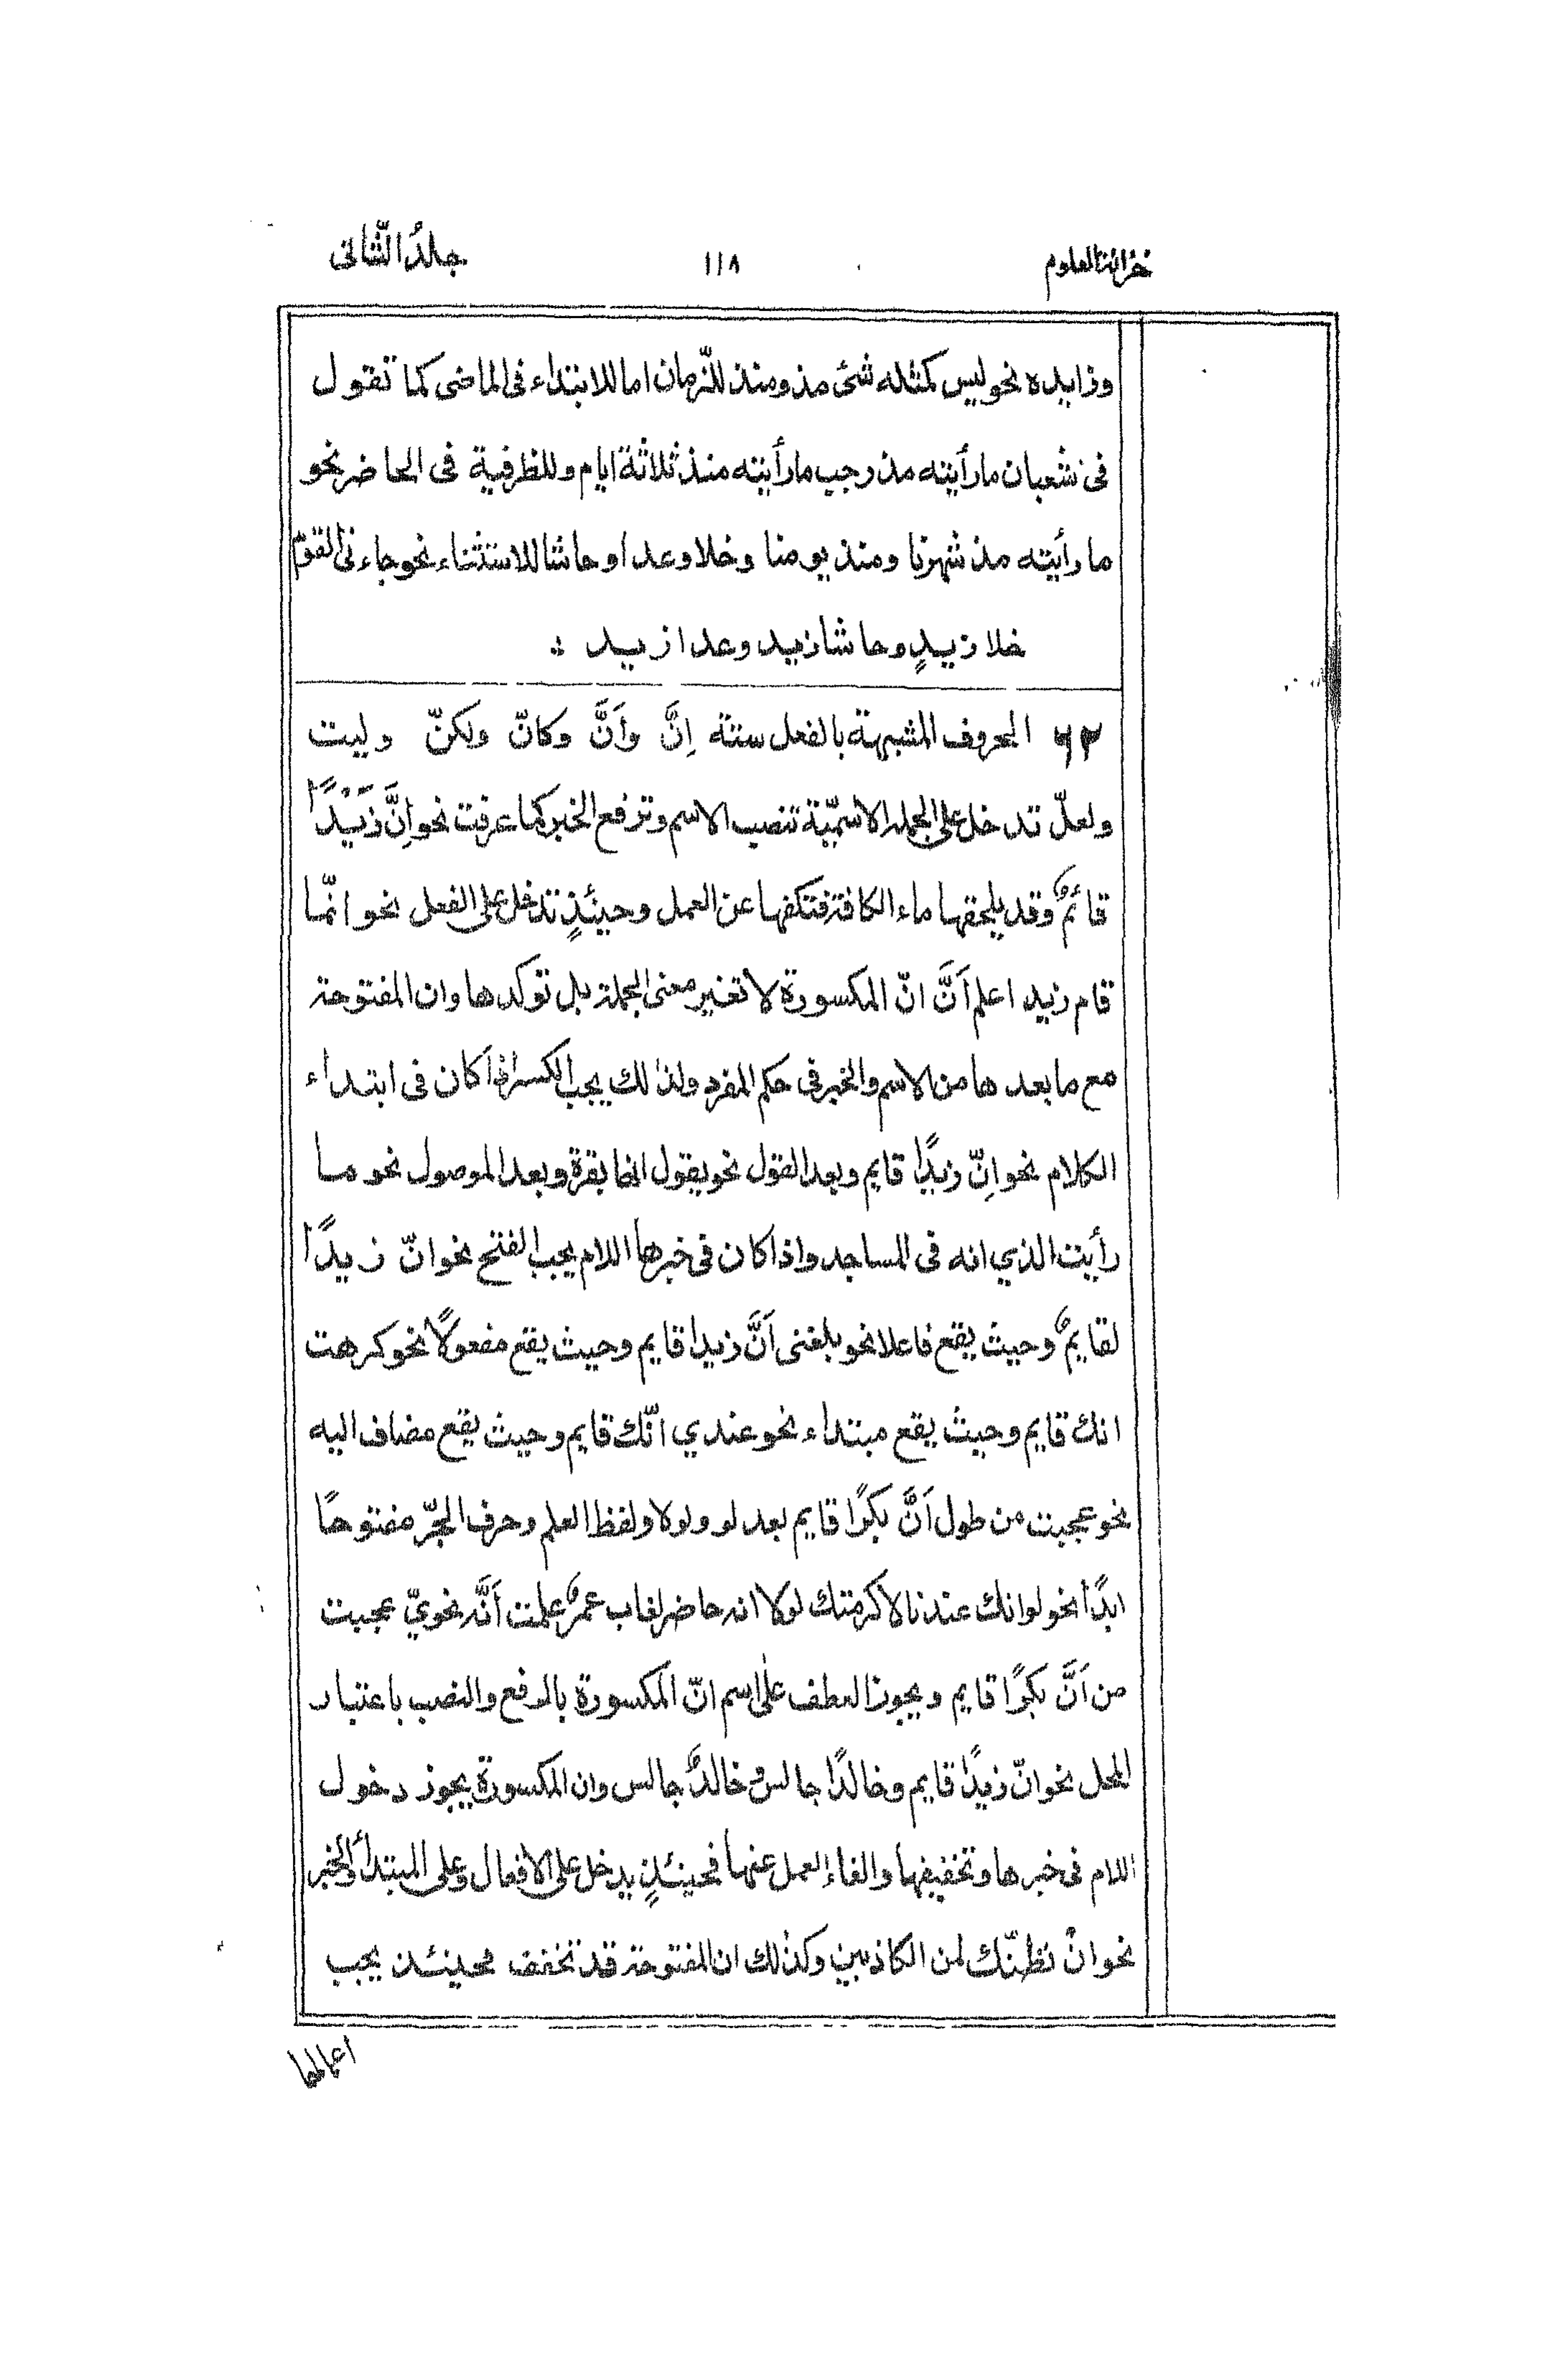 خزائن العلوم
١١٨
جلدُ الثّانی
وزایده نحو لیس کمثله شئ مذ ومنذ للزّمان اما للابتداء فی الماضی کما تقول
فی شعبان مارأیته مذ رجب مارأیته منذ ثلاثة ایام وللظرفیة فی الحاضر نحو
ما رأیته مذ شهرنا ومنذ یومنا وخلا وعدا وحاشا للاستثناء نحو جاءنی القوم
خلا زیدٍ وحاشا زید وعدا زید
٦٢ الحروف المشبهة بالفعل ستة اِنَّ وأَنَّ وکانّ ولکنّ ولیت
ولعلّ تدخل علی الجملة الاسمیّة تنصب الاسم وترفع الخبر کما عرفت نحو اِنَّ زَیْدًا
قائمٌ وقد یلحقها ماء الکافة فتکفها عن العمل وحینئذٍ تدخل علی الفعل نحو انّما
قام زید اعلم اَنَّ انّ المکسورة لا تغیر معنی الجملة بل توکدها وان المفتوحة
مع ما بعدها من الاسم والخبر فی حکم المفرد ولذالك یجب الکسر اذا کان فی ابتداء
الکلام نحو اِنّ زیدًا قایم وبعد القول نحو یقول انها بقرة وبعد الموصول نحو ما
رأیت الذي انه فی المساجد واذا کان فی خبرها اللام یجب الفتح نحو انّ زیدًا
لقایمٌ وحیث یقع فاعلا نحو بلغنی اَنَّ زیدا قایم وحیث یقع مفعولاً نحو کرهت
انك قایم وحیث یقع مبتداء نحو عندي انّك قایم وحیث یقع مضاف الیه
نحو عجبت من طول اَنَّ بکرًا قایم بعد لو ولولا ولفظ العلم وحرف الجرّ مفتوحًا
ابدًا نحو لو انك عندنا لاکرمتك لولا انه حاضر لغاب عمرٌ علمت اَنَّه نحويّ عجبت
من اَنَّ بکرًا قایم ویجوز العطف علی اسم انّ المکسورة بالرفع والنصب باعتبار
المحل نحو انّ زیدًا قایم وخالدًا جالس وخالدٌ جالس وان المکسورة یجوز دخول
اللام فی خبرها وتخفیفها والغاء العمل عنها فحینئذٍ یدخل علی الافعال وعلی المبتدأ والخبر
نحو انْ نظنّك لمن الکاذبین وکذلك ان المفتوحة قد تخفف فحینئذ یجب
اعمالها